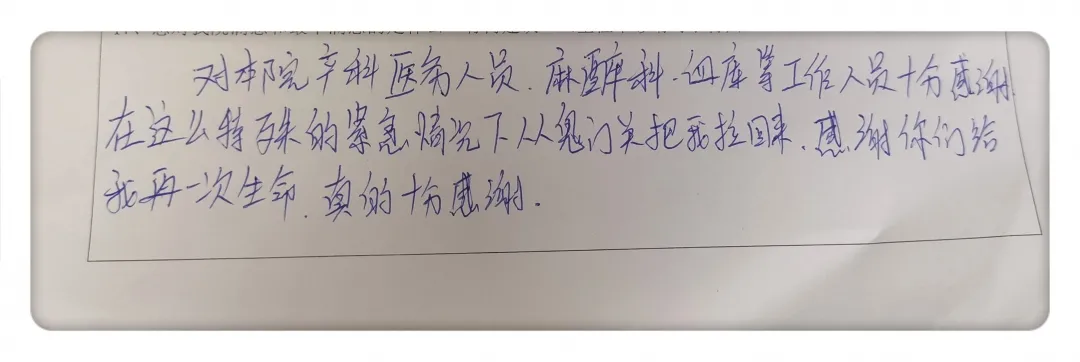 对本院产科医务人员.麻醉科.血库等工作人员十分感谢
在这么特殊的紧急情况下从鬼门关把我拉回来.感谢你们给
我再一次生命.真的十分感谢.